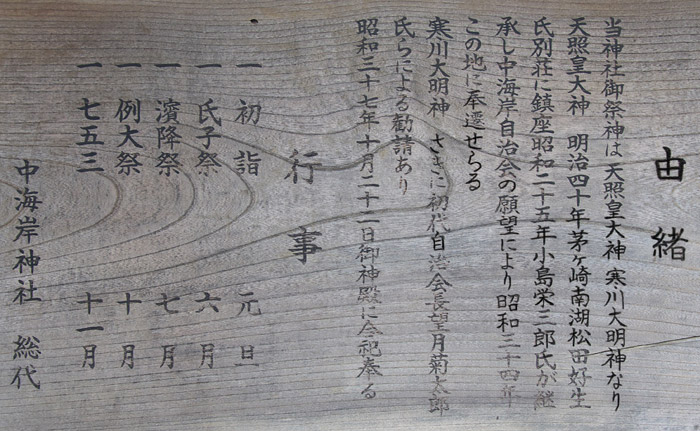 由緒
当神社御祭神は 天照皇大神 寒川大明神なり
天照皇大神 明治四十年茅ヶ崎南湖松田好生
氏別荘に鎮座昭和二十五年小島栄三郎氏が継
承し中海岸自治会の願望により昭和三十四年
この地に奉遷せらる
寒川大明神 さきに初代自治会長望月菊太郎
氏らによる勧請あり
昭和三十七年十月二十二日御神殿に合祀奉る
行事
一 初詣 元旦
一 氏子祭 六月
一 濱降祭 七月
一 例大祭 十月
一 七五三 十一月
中海岸神社 総代